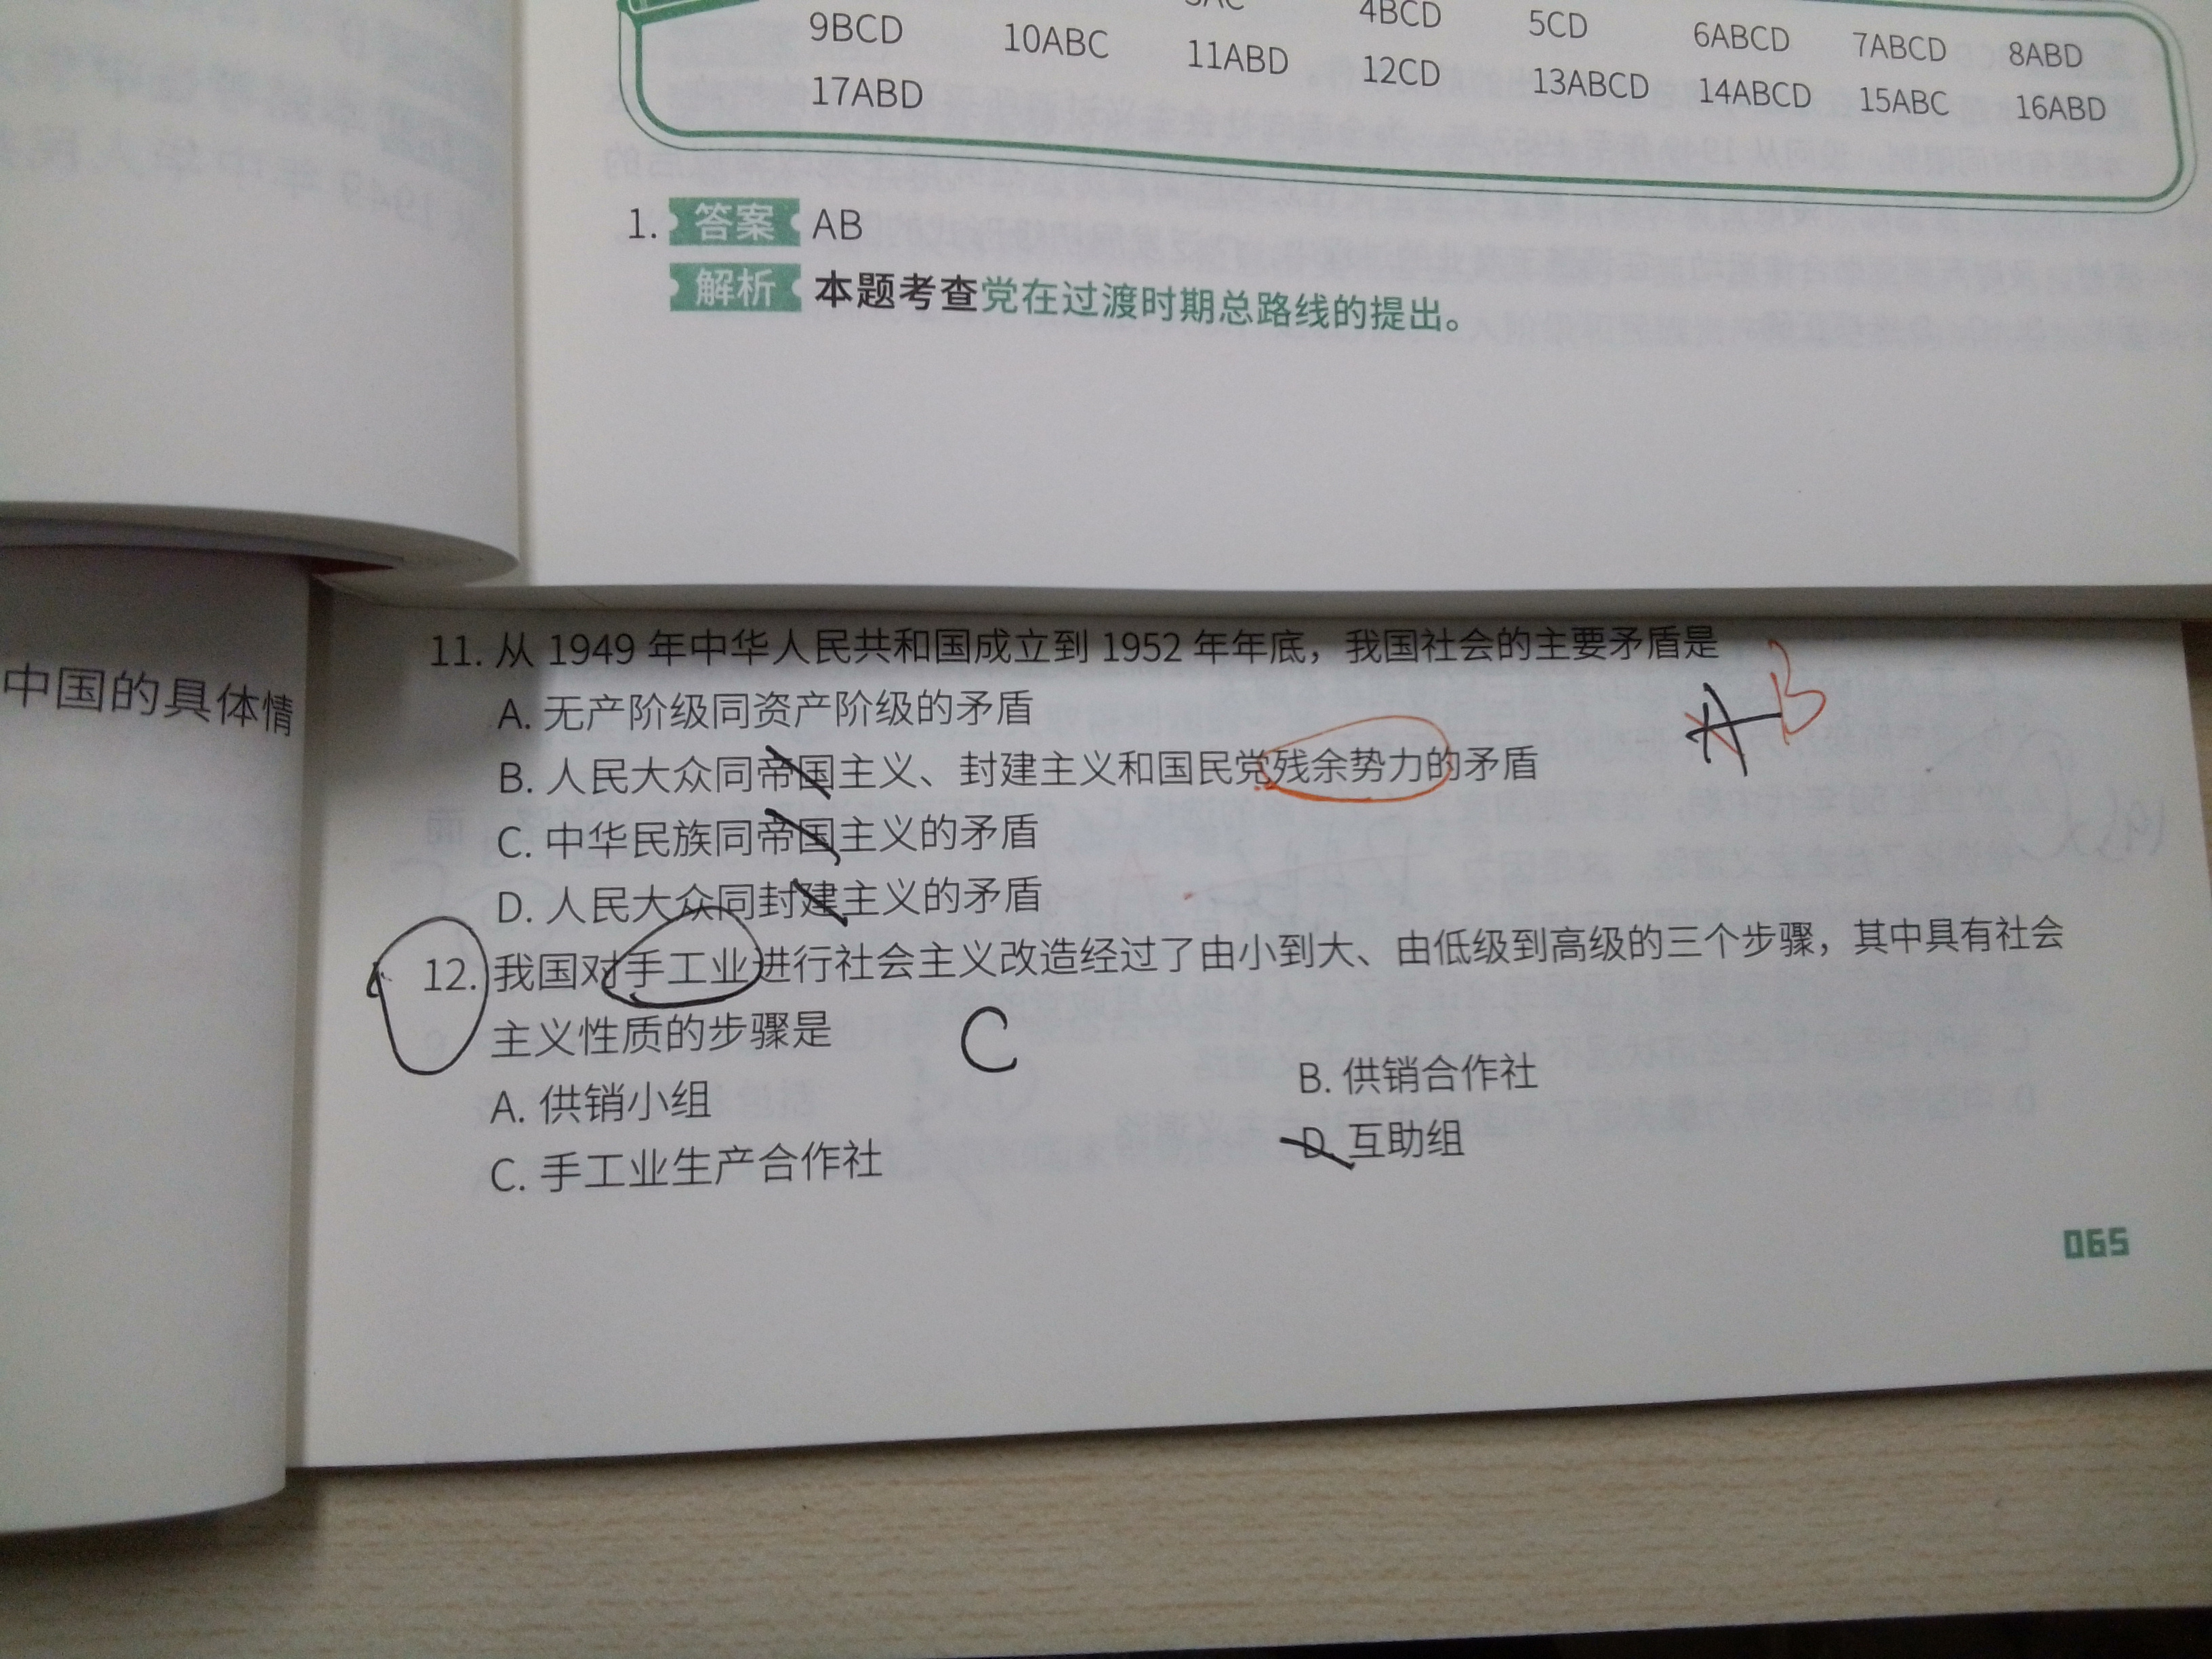 4BCD 5CD 6ABCD 7ABCD 8ABD
9BCD 10ABC 11ABD 12CD 13ABCD 14ABCD 15ABC 16ABD
17ABD
1. 答案 AB
解析 本题考查党在过渡时期总路线的提出。
中国的具体情
11. 从 1949 年中华人民共和国成立到 1952 年年底，我国社会的主要矛盾是
A B
A. 无产阶级同资产阶级的矛盾
B. 人民大众同帝国主义、封建主义和国民党残余势力的矛盾
C. 中华民族同帝国主义的矛盾
D. 人民大众同封建主义的矛盾
12. 我国对手工业进行社会主义改造经过了由小到大、由低级到高级的三个步骤，其中具有社会
主义性质的步骤是
C
A. 供销小组 B. 供销合作社
C. 手工业生产合作社 D. 互助组
065